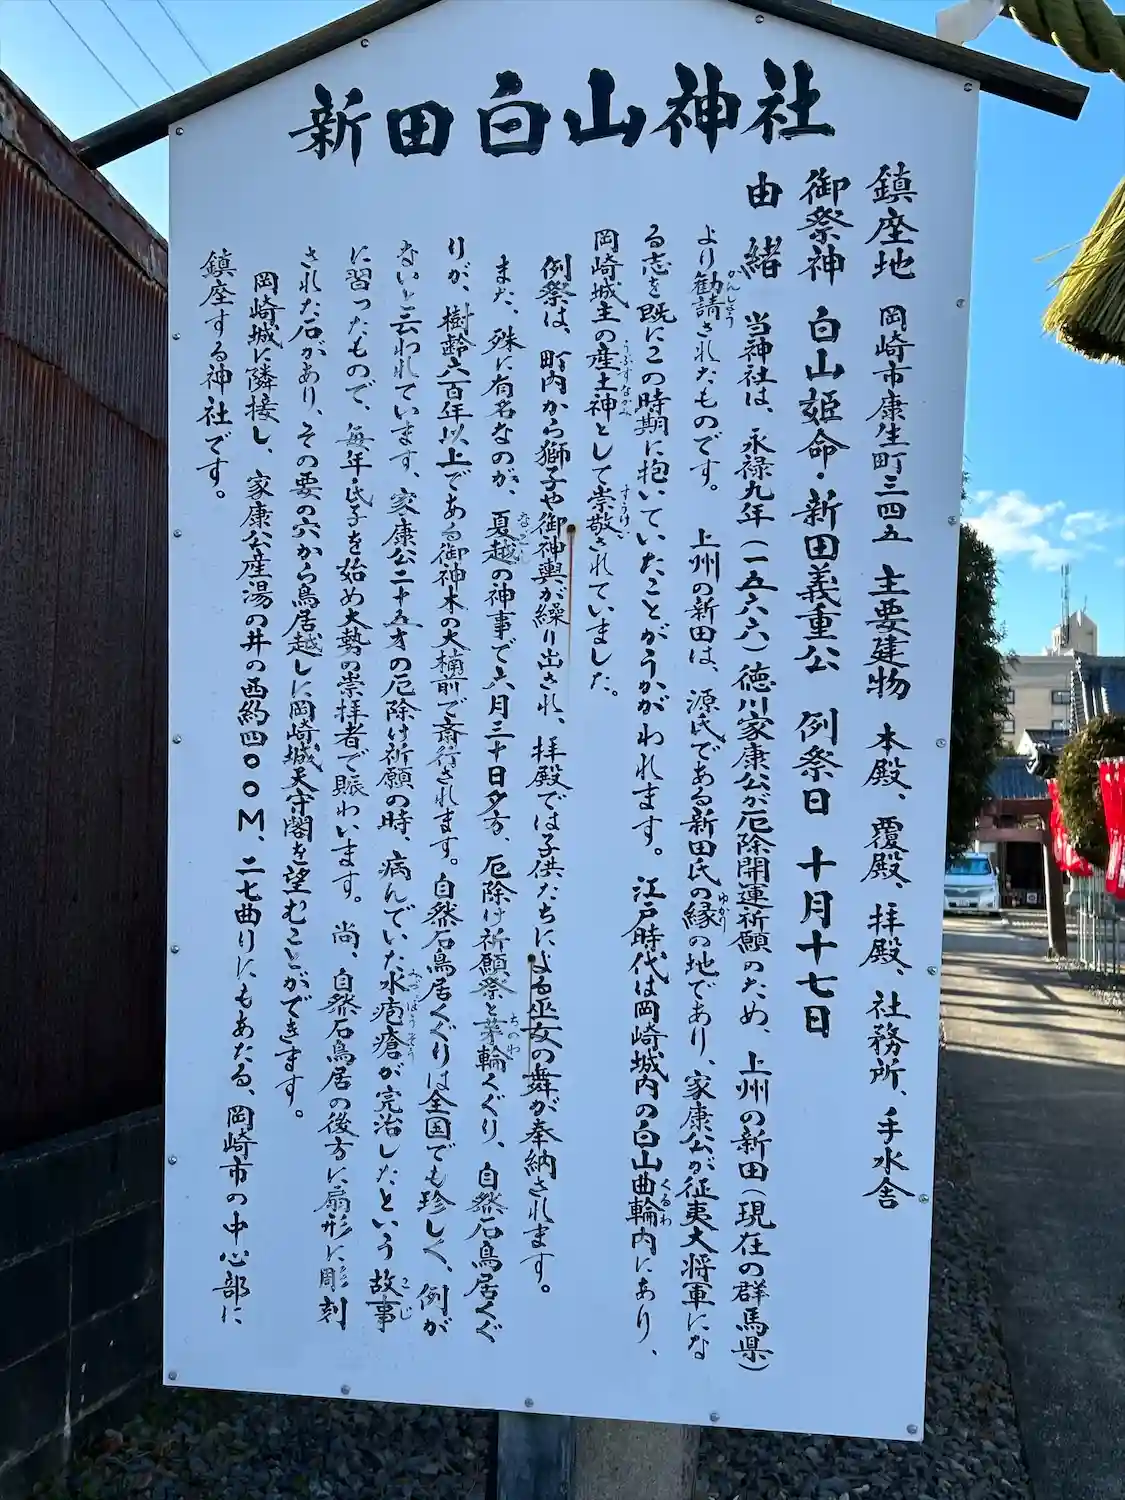 新田白山神社
鎮座地 岡崎市康生町三四五 主要建物 本殿、覆殿、拝殿、社務所、手水舎
御祭神 白山姫命・新田義重公 例祭日 十月十七日
由緒 当神社は、永禄九年(一五六六)徳川家康公が厄除開運祈願のため、上州の新田(現在の群馬県)
より勧請されたものです。 上州の新田は、源氏である新田氏の縁の地であり、家康公が征夷大将軍にな
る志を既にこの時期に抱いていたことがうかがわれます。江戸時代は岡崎城内の白山曲輪内にあり、
岡崎城主の産土神として崇敬されていました。
例祭は、町内から獅子や御神輿が繰り出され、拝殿では子供たちによる巫女の舞が奉納されます。
また、殊に有名なのが、夏越の神事で六月三十日夕方、厄除け祈願祭と茅輪くぐり、自然石鳥居くぐ
りが、樹齢六百年以上である御神木の大楠前で斎行されます。自然石鳥居くぐりは全国でも珍しく、例が
ないと云われています、家康公二十五才の厄除け祈願の時、病んでいた水疱瘡が完治したという故事
に習ったもので、毎年氏子を始め大勢の崇拝者で賑わいます。尚、自然石鳥居の後方に扇形に彫刻
された石があり、その要の穴から鳥居越しに岡崎城天守閣を望むことができます。
岡崎城に隣接し、家康公産湯の井の西約四〇〇M、二七曲りにもあたる、岡崎市の中心部に
鎮座する神社です。